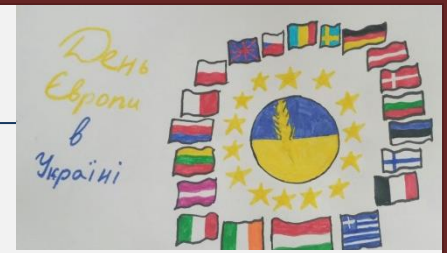 День
Європи
в
Україні